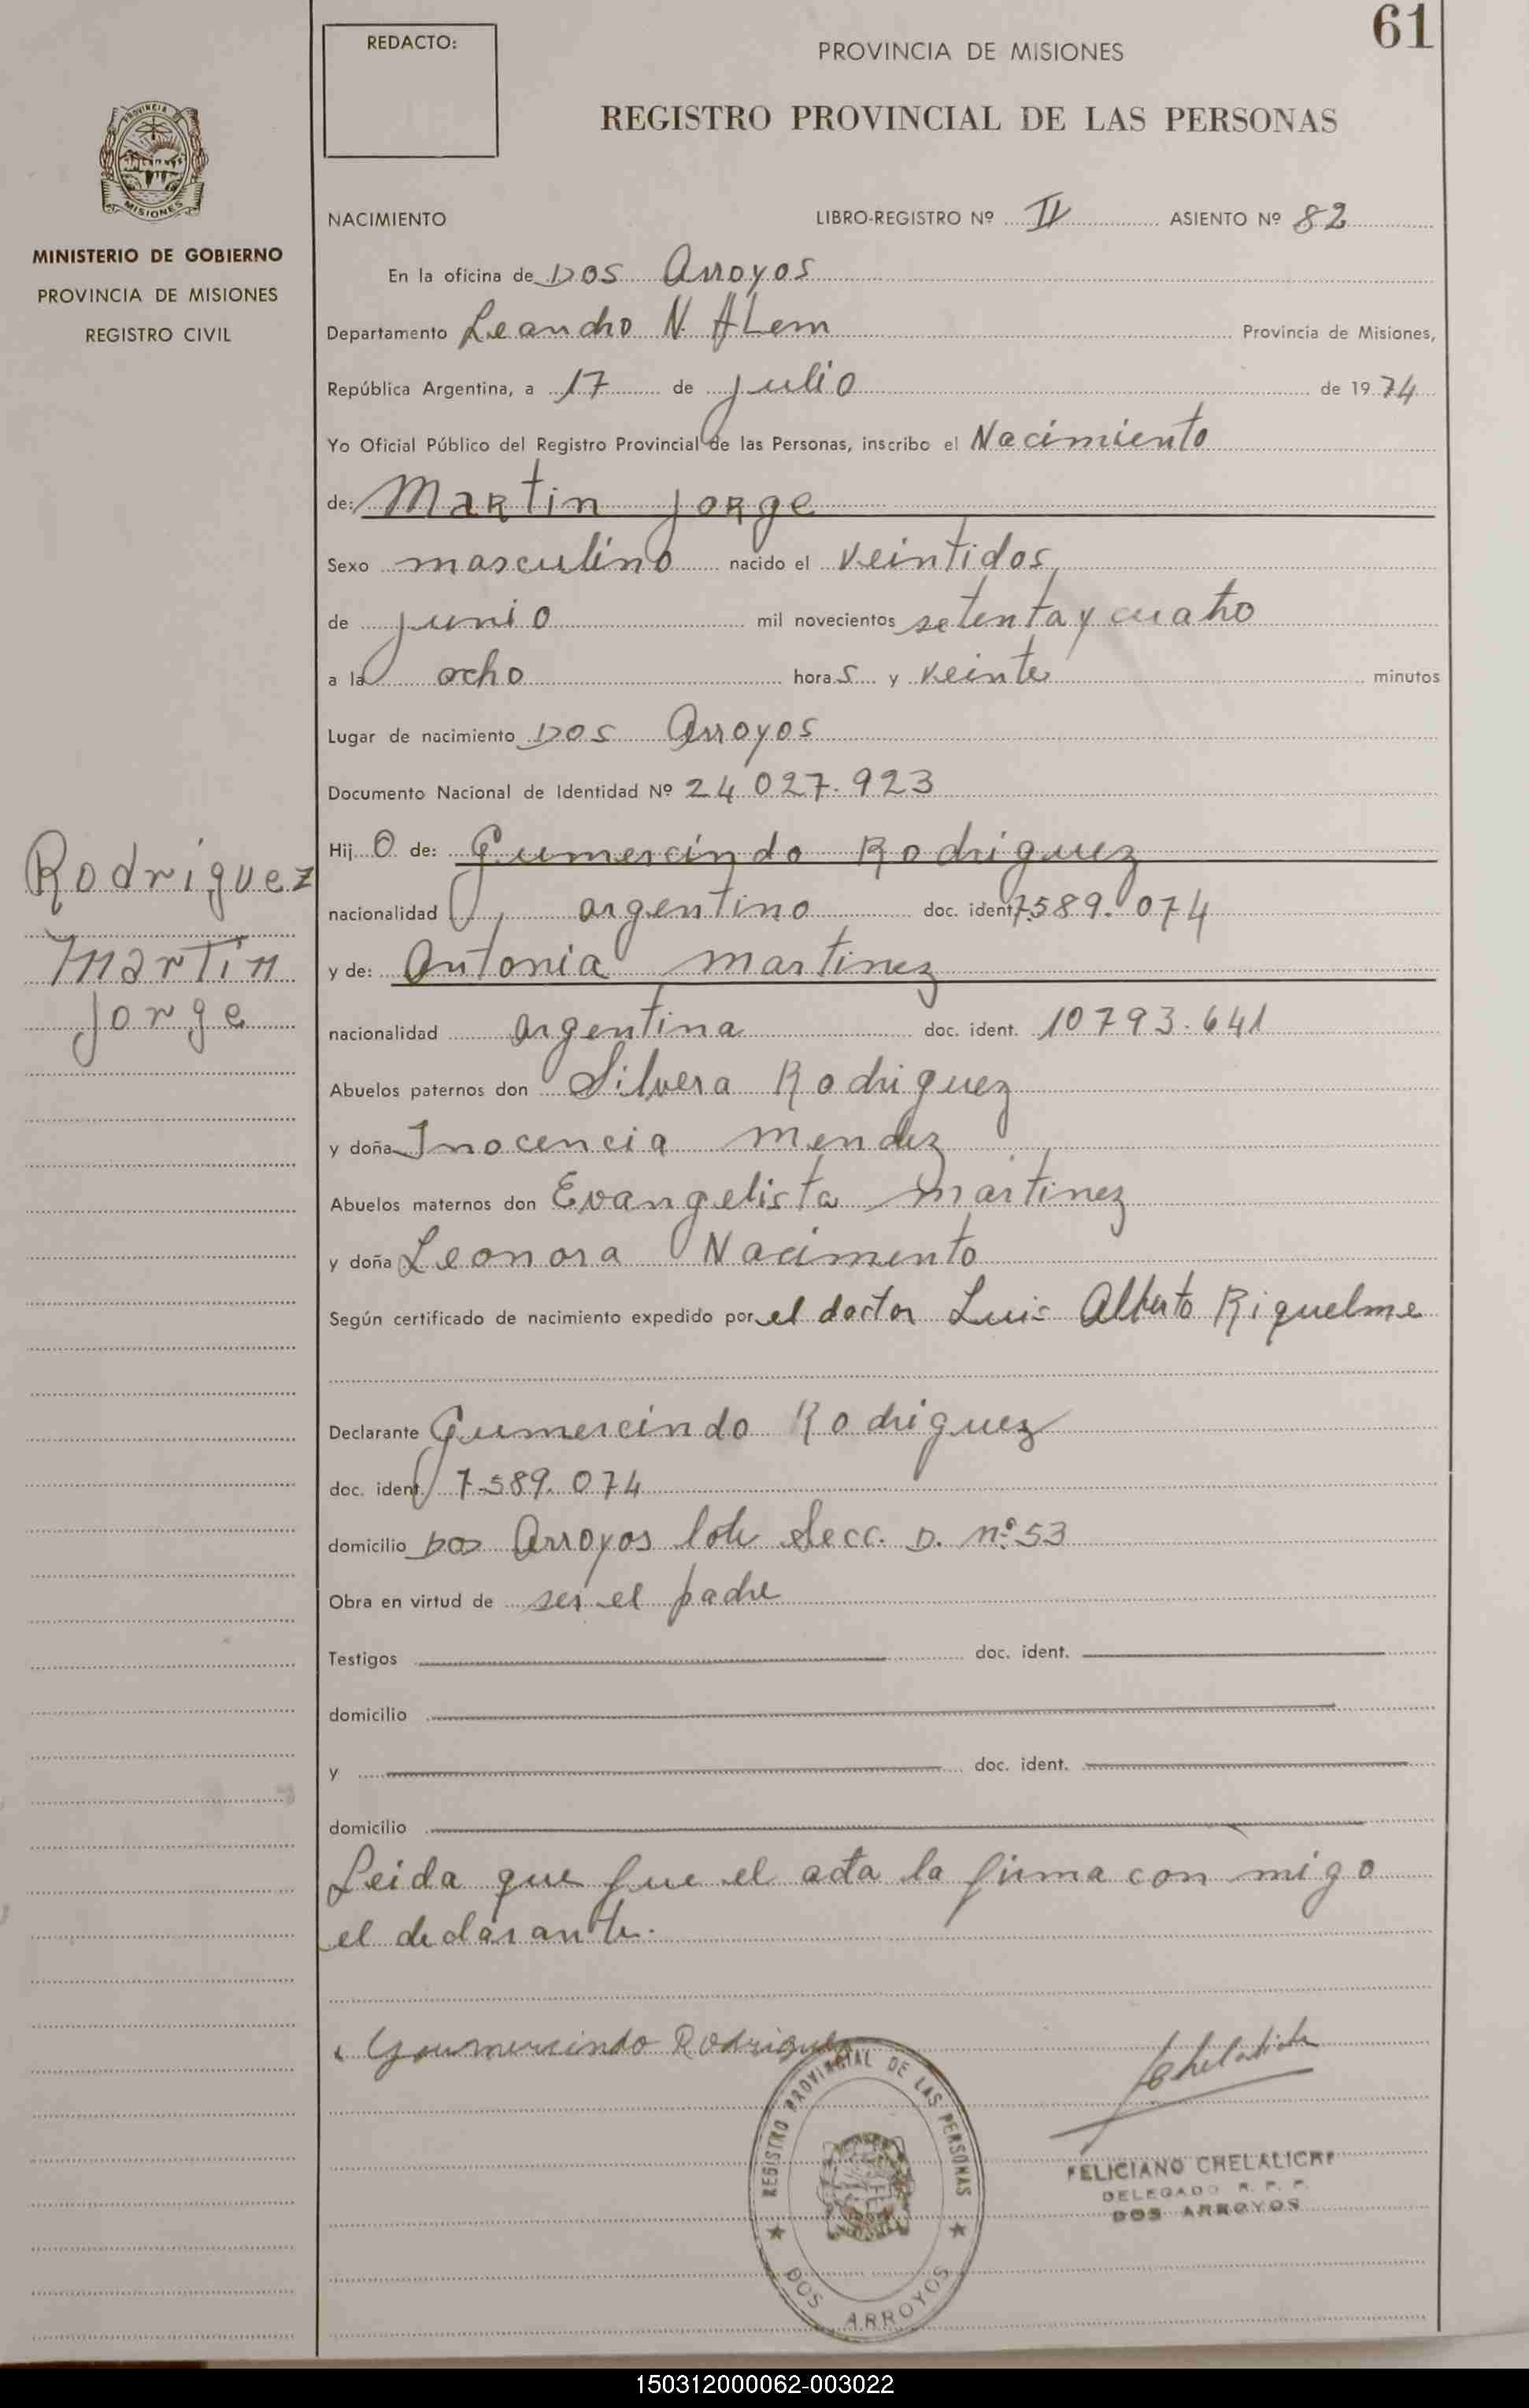 61
REDACTO:
PROVINCIA DE MISIONES
REGISTRO PROVINCIAL DE LAS PERSONAS
PROVINCIA DE
MISIONES
MINISTERIO DE GOBIERNO
PROVINCIA DE MISIONES
REGISTRO CIVIL
NACIMIENTO LIBRO-REGISTRO Nº II ASIENTO Nº 82
En la oficina de Dos Arroyos
Departamento Leandro N. ALem Provincia de Misiones,
República Argentina, a 17 de julio de 1974
Yo Oficial Público del Registro Provincial de las Personas, inscribo el Nacimiento
de: Martin Jorge
Sexo masculino nacido el veintidos
de junio mil novecientos setenta y cuatro
a la ocho horas y veinte minutos
Lugar de nacimiento Dos Arroyos
Documento Nacional de Identidad Nº 24 027.923
Hijo de: Gumercindo Rodriguez
nacionalidad argentino doc. ident. 7.589.074
y de: Antonia Martinez
nacionalidad argentina doc. ident. 10793.641
Abuelos paternos don Silvera Rodriguez
y doña Inocencia Mendez
Abuelos maternos don Evangelista Martinez
y doña Leonora Nacimento
Según certificado de nacimiento expedido por el doctor Luis Alberto Riquelme
Declarante Gumercindo Rodriguez
doc. ident. 7.589.074
domicilio Dos Arroyos lote Secc. D. nº 53
Obra en virtud de ser el padre
Testigos doc. ident.
domicilio
y doc. ident.
domicilio
Leida que fue el acta la firma con migo
el declarante.
Rodriguez
Martin
Jorge
Goumercindo Rodriguez
REGISTRO PROVINCIAL DE LAS PERSONAS
DOS ARROYOS
FELICIANO CHELALICHE
DELEGADO R. P. P.
DOS ARROYOS
150312000062-003022